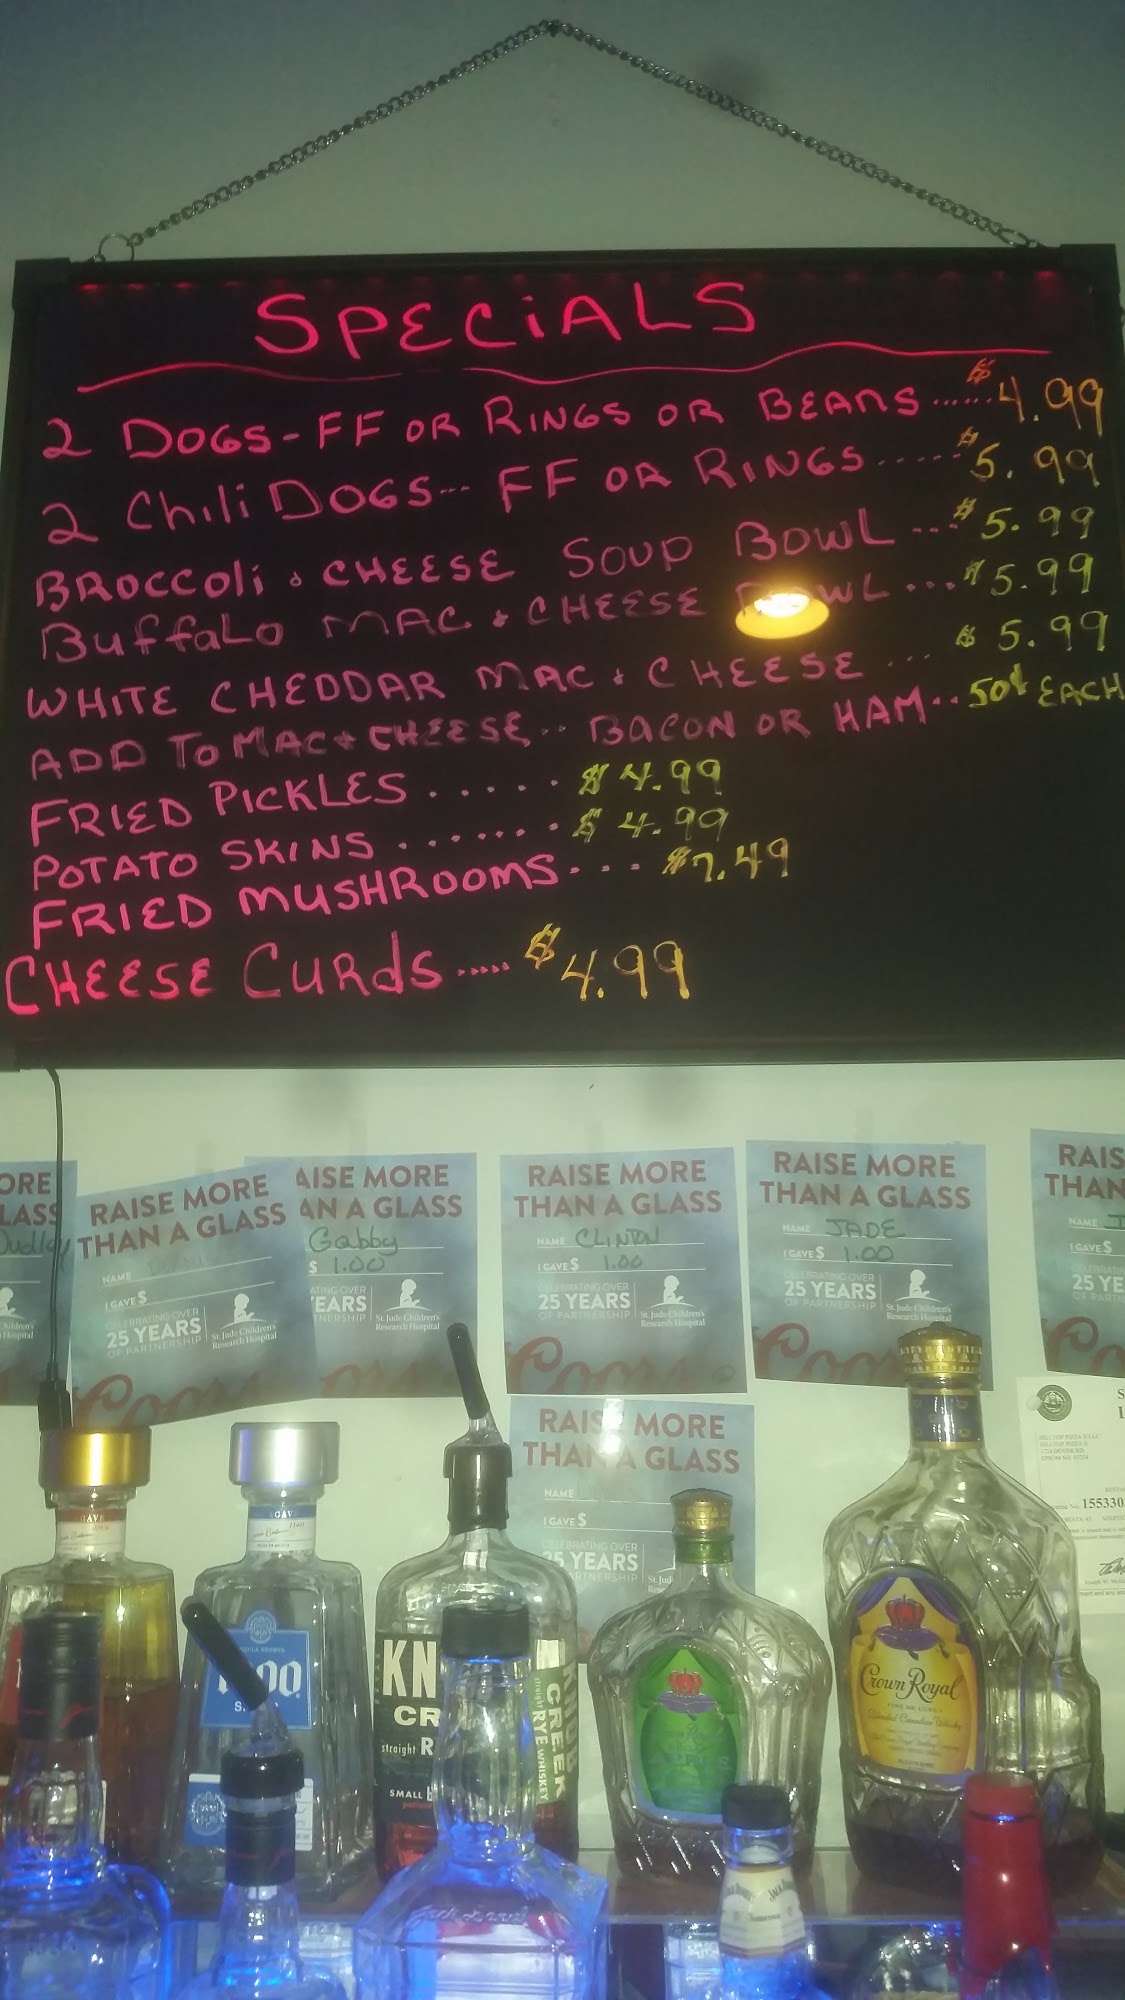 SPECiALS
2 DOGS - FF OR RINGS OR BEANS ...... $4.99
2 Chili DOGS --- FF OR RINGS ..... $5.99
BROCCOLi & CHEESE SOUP BOWL ... $5.99
BuffaLo MAC & CHEESE BOWL ... $5.99
WHITE CHEDDAR MAC & CHEESE ... $5.99
ADD To MAC & CHEESE ... BACON OR HAM .. 50¢ EACH
FRIED PICKLES ..... $4.99
POTATO SKINS ....... $4.99
FRIED MUSHROOMS ... $7.49
CHEESE CURdS ..... $4.99
ORE
LASS
Dudley
RAISE MORE
THAN A GLASS
NAME
I GAVE $
CELEBRATING OVER
25 YEARS
OF PARTNERSHIP
St. Jude Children's
Research Hospital
Coors
AISE MORE
AN A GLASS
Gabby
$ 1.00
YEARS
St. Jude Children's
Research Hospital
RAISE MORE
THAN A GLASS
NAME CLINTON
I GAVE $ 1.00
CELEBRATING OVER
25 YEARS
OF PARTNERSHIP
St. Jude Children's
Research Hospital
Coors
RAISE MORE
THAN A GLASS
NAME JADE
I GAVE $ 1.00
CELEBRATING OVER
25 YEARS
OF PARTNERSHIP
St. Jude Children's
Research Hospital
Coors
RAIS
THAN
NAME
I GAVE $
25 YE
RAISE MORE
THAN A GLASS
NAME
I GAVE $
CELEBRATING OVER
25 YEARS
HILLTOP PIZZA II LLC
HILLTOP PIZZA II
155330
KN
CR
straight R
SMALL
CREEK
straight RYE WHISKEY
Crown Royal
Blended Canadian Whisky
JACK DANIEL